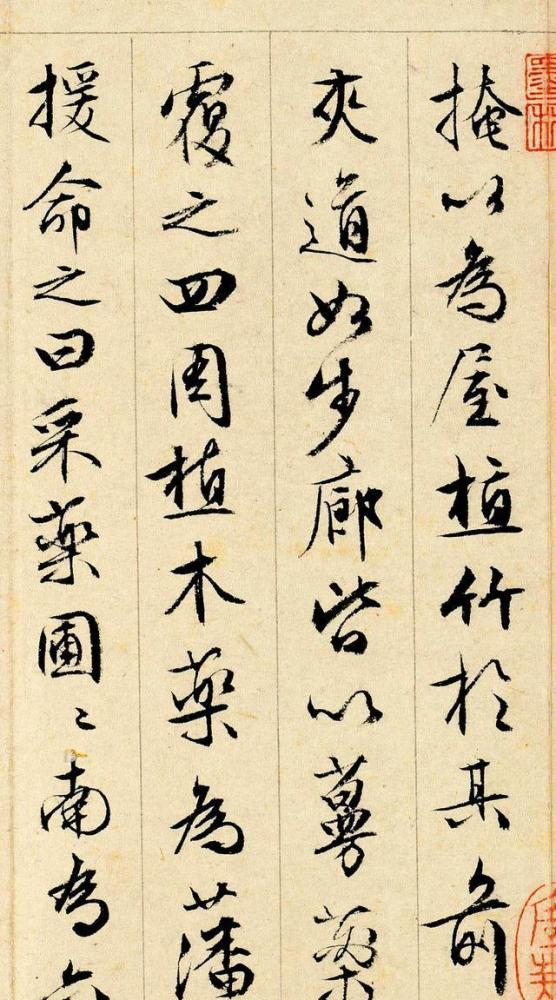 掩以為屋植竹於其前
夾道如步廊皆以蔓藥
覆之四周植木藥為藩
援命之曰采藥圃〻南為